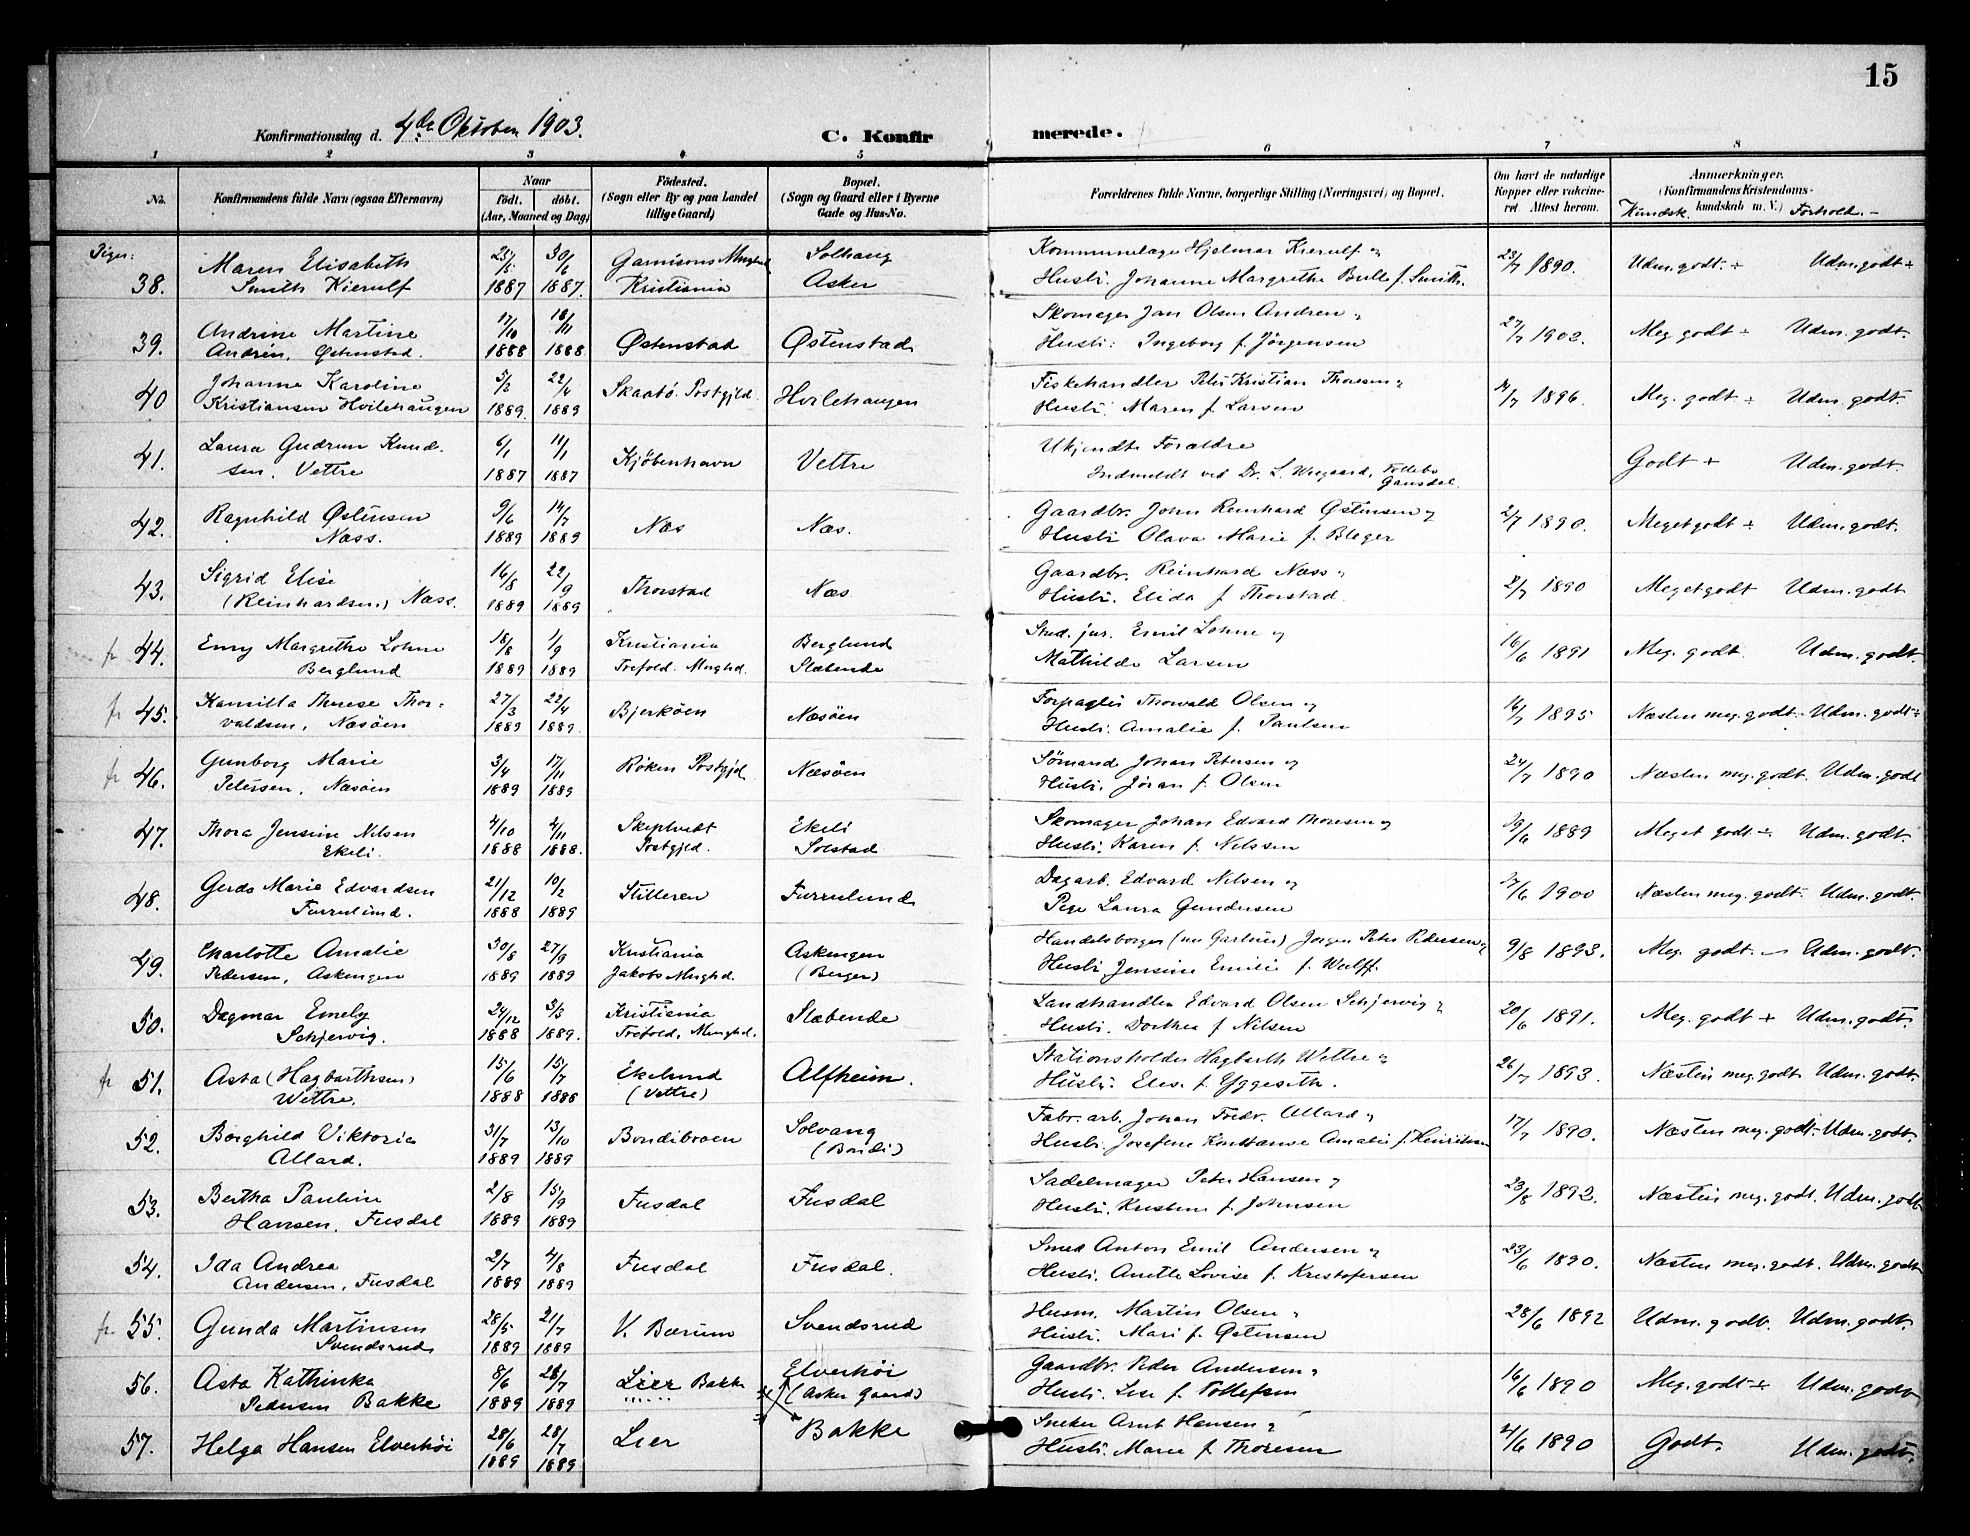 15
Konfirmationsdag d. 4de Oktober 1903.
C. Konfirmerede.
1 2 3 4 5 6 7 8
No.
Konfirmandens fulde Navn (ogsaa Efternavn)
Naar
født. døbt.
(Aar, Maaned og Dag)
Fødested.
(Sogn eller By og paa Landet
tillige Gaard)
Bopæl.
(Sogn og Gaard eller i Byerne
Gade og Hus-No.
Forældrenes fulde Navne, borgerlige Stilling (Næringsvei) og Bopæl.
Om havt de naturlige
Kopper eller vakcine-
ret. Attest herom.
Anmærkninger.
(Konfirmandens Kristendoms-
kundskab m. V.)
Kundsk. Forhold.
Piger:
38. Maren Elisabeth 23/5 30/6 Garnisons Mnghd Solhaug Hjelmar Kierulf og 23/7 1890. Udm. godt. ÷ Udm. godt ÷
Smith Kierulf 1887 1887. Kristiania Asker Hustr. Johanne Margrethe Bull f. Smith.
39. Andrine Martine 17/10 18/11 Østenstad Østenstad Skomager Jan Olsen Andren og 27/7 1902. Meg godt ÷ Udm. godt.
Andrén, Østenstad. 1888 1888. Hustr: Ingeborg f. Jörgensen
40 Johanne Karoline 22/4 Skaatö Prstgjld. Hvilehaugen Fiskehandler Peter Kristian Thoresen og 1896. Meg. godt ÷ Udm. godt.
Kristiansen Hvilehaugen 1889. 1889 Hustr. Maren f. Larsen
41. Laura Gudrun Knud- 6/1 11/1 Kjöbenhavn Vettre Ukjendte Forældre Godt + Udm. godt.
sen, Vettre 1887 1887 Indmeldt ved Dr. L. Tollebo Gansdal.
42. Ragnhild Østensen 9/6 14/7 Næs Næs. Gaardbr. John Reinhard Østensen og 2/7 1890. Meget godt ÷ Udm. godt.
Næss. 1889 1889 Hustr Olava Marie f. Bleger
43. Sigrid Elise 16/8 22/9 Thorstad Næs Gaardbr. Reinhard Næss og 2/7 1890 Meget godt Udm. godt
(Reinhardsen) Næss. 1889 1889 Hustr. Elida f Thorstad.
fr 44. Emy Margrethe Lohne 18/8 1/9 Kristiania Berglund Stud. jur. Emil Lohne og 16/6 1891 Meg. godt. Udm. godt.
Berglund 1889 1889 Trefold. Mnghd. Slæbende Mathilde Larsen
fr 45. Kamilla Therese Thor- 27/3 22/4 Bjerköen Næsöen Forpagter Thorvald Olsen og 16/7 1895 Næsten meg. godt. Udm. godt ÷
valdsen, Næsöen 1889 1889. Hustr. Amalie f. Paulsen
fr 46. Gunborg Marie 3/4 17/11 Röken Prstgjld Næsöen Sömand Johan Petersen og 24/7 1890 Næsten meg. godt. Udm. godt
Petersen, Næsöen 1889 1889 Hustr. Jöran f. Olsen
47. Thora Jensine Nilsen 4/10 4/11 Skiptvedt Ekeli Skomager Johan Edvard Thoresen og 19/6 1889 Meget godt ÷ Udm. godt.
Ekeli. 1888 1888. Prstgjld. Solstad Hustr. Karen f. Nilssen
48. Gerda Marie Edvardsen 21/12 10/2 Stilleren Furrulund Dagarb. Edvard Nilsen og 1900 Næsten meg. godt. Udm. godt.
Furrulund. 1888 1889 Pige Laura Gundersen
49. Charlotte Amalie 30/8 27/9 Kristiania Askengen Handelsborger (nu Gartner) Jörgen Peter Pedersen og 9/8 1893. Meg. godt. Udm. godt.
Pedersen, Askengen 1889 1889 Jakobs Mnghd. (Berger) Hustr Jensine Emilie f. Wulff.
50. Dagmar Emely 24/12 3/3 Kristiania Slæbende Landhandler Edvard Olsen Schjervig og 20/6 1891. Meg. godt + Udm. godt.
Schjervig. 1888 1889. Trefold. Mnghd. Hustr. Dorthea f Nilsen
fr 51. Asta (Hagbarthsen) 15/6 15/7 Ekelund Alfheim. Stationsholder Hagbarth Wettre og 26/7 1893. Næsten meg. godt Udm. godt.
Wettre. 1888 1888 (Vettre) Hustr. Elis. f. Yggeseth.
52. Borghild Viktoria 31/7 13/10 Bondibroen Solvang Fabr. arb. Johan Fredr. Allard og 17/7 1890. Næsten meg. godt. Udm. godt.
Allard. 1889 1889 (Bondi) Hustr. Josefine Konstanse Amalie f. Heinriksen
53. Bertha Pauline 2/8 15/9 Fusdal Fusdal Sadelmager Peter Hansen og 23/8 1892. Næsten meg. godt. Udm. godt
Hansen, Fusdal 1889 1889 Hustr. Kristine f. Johnsen
54. Ida Andrea 2/7 4/8 Fusdal Fusdal. Smed Anton Emil Andersen og 23/6 1890. Næsten meg. godt. Udm. godt
Andersen, Fusdal 1889 1889 Hustr. Anette Lovise f. Kristofersen
fr 55. Gunda Martinsen 28/5 21/7 V. Bærum Svendsrud Husm. Martin Olsen og 28/6 1892 Udm. godt. Udm. godt.
Svendsrud 1889 1889 Hustr. Mari f. Østensen
56. Asta Kathinka 8/6 28/7 Lier Bakke Elverhöi Gaardbr. Peder Andersen og 16/6 1890 Meg. godt ÷ Udm. godt
Pedersen Bakke 1889 1889 (Asker Gaard) Hustr. Lise f. Tollefsen
57. Helga Hansen Elverhöi 28/6 28/7 Lier Bakke Sneker Arnt Hansen og 4/6 1890 Godt. Udm. godt.
1889 1889 Hustr. Marie f. Thoresen